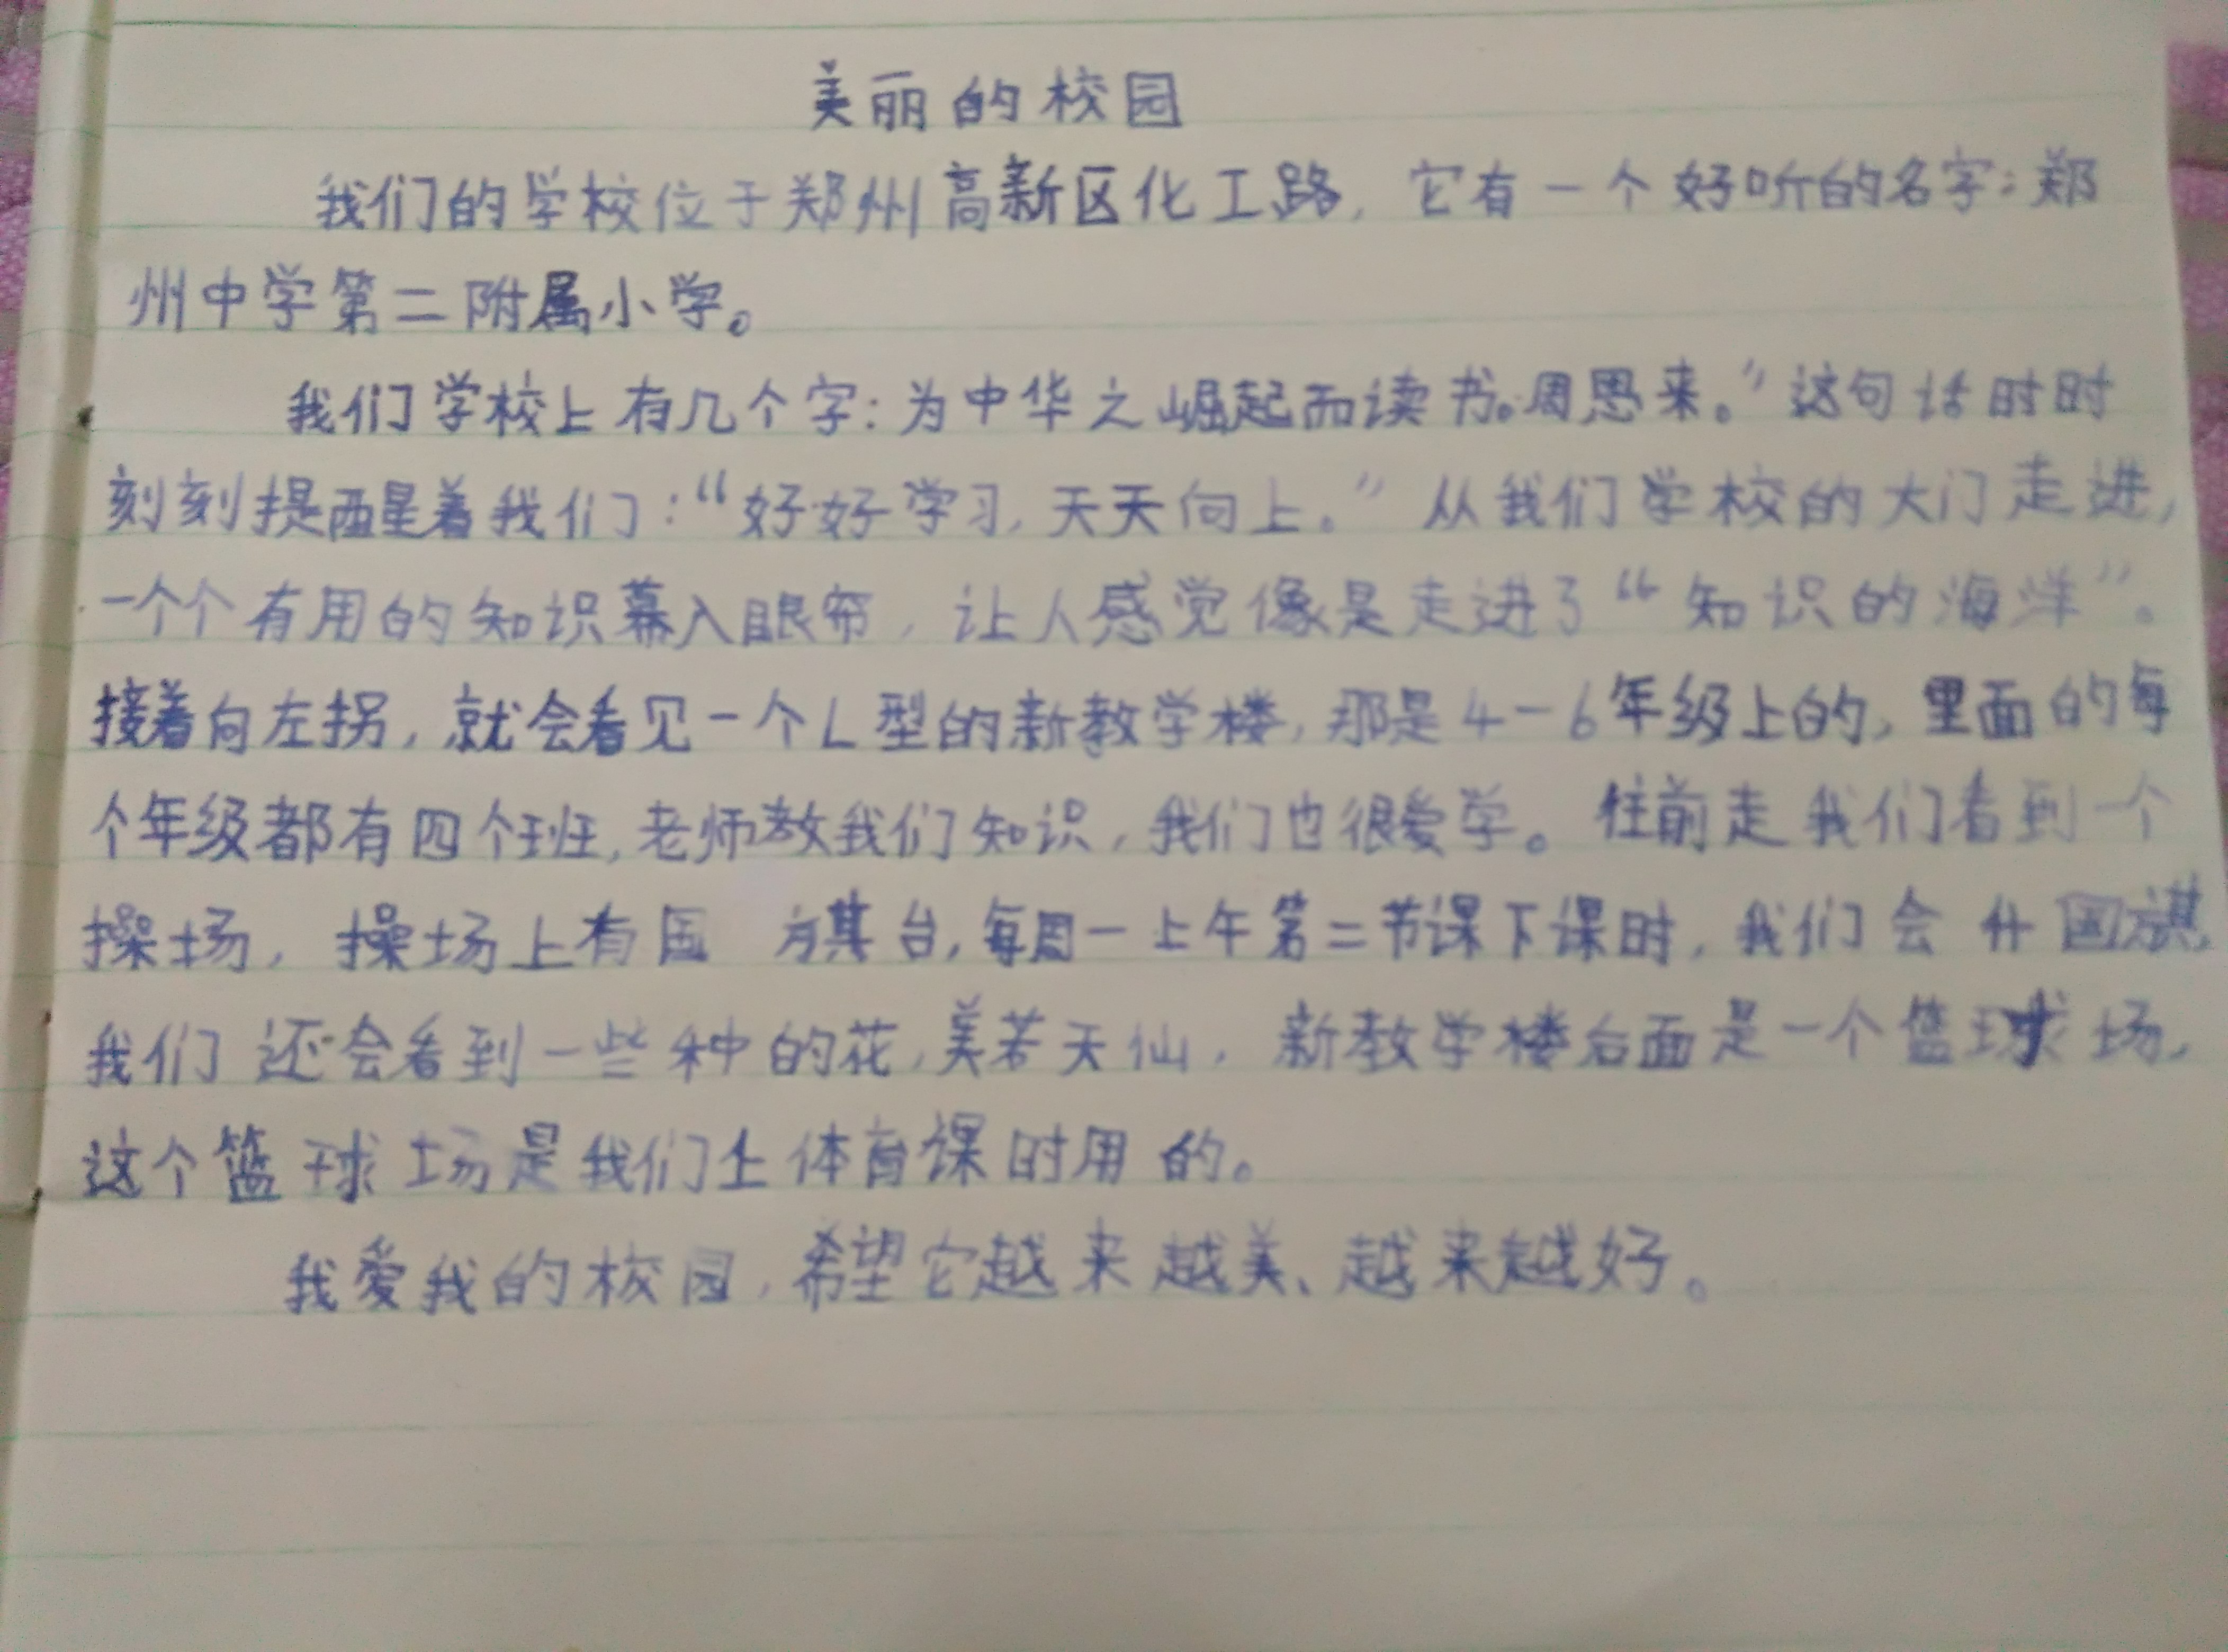 美丽的校园
我们的学校位于郑州高新区化工路，它有一个好听的名字：郑
州中学第二附属小学。
我们学校上有几个字：为中华之崛起而读书。周恩来。”这句话时时
刻刻提醒着我们：“好好学习，天天向上。”从我们学校的大门走进，
一个个有用的知识幕入眼帘，让人感觉像是走进了“知识的海洋”。
接着向左拐，就会看见一个L型的新教学楼，那是4-6年级上的，里面的每
个年级都有四个班，老师教我们知识，我们也很爱学。往前走我们看到一个
操场，操场上有国旗台，每周一上午第二节课下课时，我们会升国旗，
我们还会看到一些种的花，美若天仙，新教学楼后面是一个篮球场，
这个篮球场是我们上体育课时用的。
我爱我的校园，希望它越来越美、越来越好。